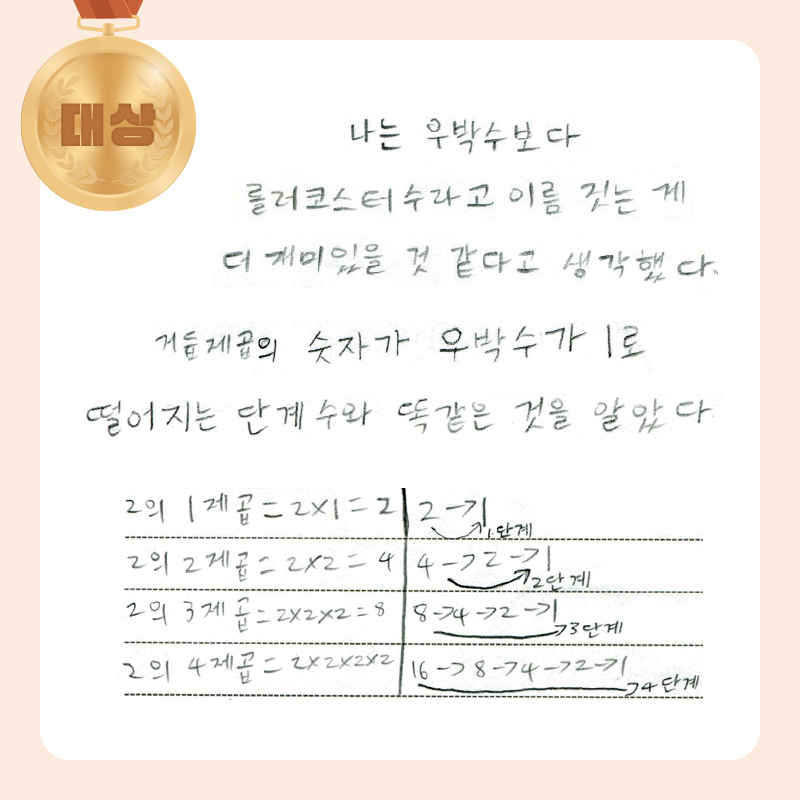 대상
나는 우박수보다
롤러코스터수라고 이름 짓는 게
더 재미있을 것 같다고 생각했다.
거듭제곱의 숫자가 우박수가 1로
떨어지는 단계수와 똑같은 것을 알았다
2의 1제곱=2×1=2 2→1
1단계
2의 2제곱=2×2=4 4→2→1
2단계
2의 3제곱=2×2×2=8 8→4→2→1
3단계
2의 4제곱=2×2×2×2 16→8→4→2→1
4단계